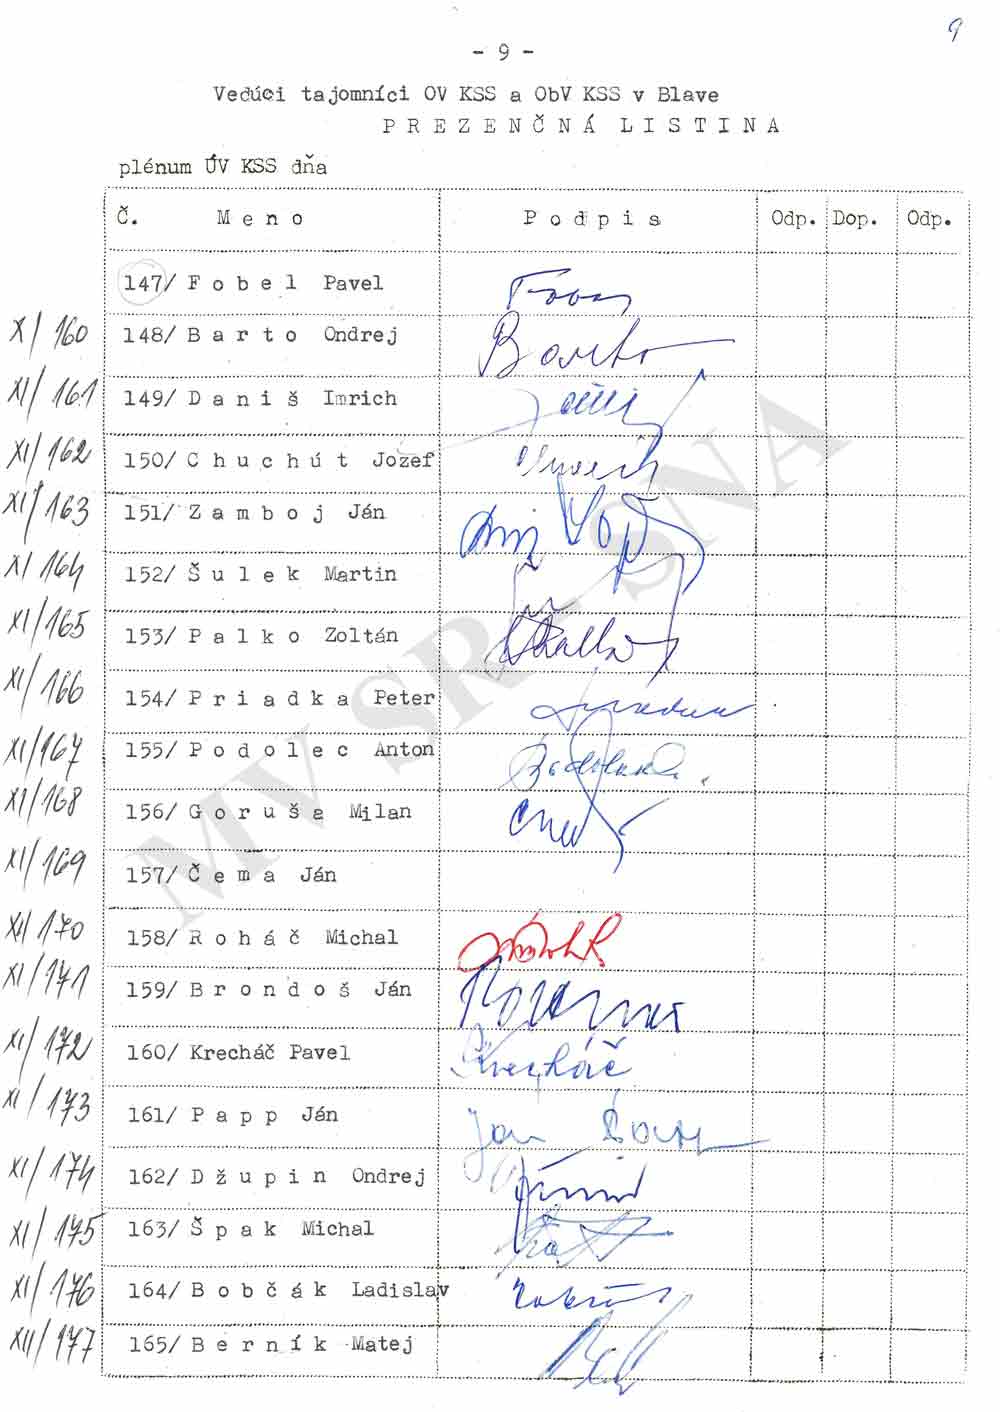 9
- 9 -
Vedúci tajomníci OV KSS a ObV KSS v Blave
PREZENČNÁ LISTINA
plénum ÚV KSS dňa
Č. Meno Podpis Odp. Dop. Odp.
147/ Fobel Pavel
X/160 148/ Barto Ondrej Barto
XI/161 149/ Daniš Imrich
XI/162 150/ Chuchút Jozef
XI/163 151/ Zamboj Ján
XI/164 152/ Šulek Martin
XI/165 153/ Palko Zoltán
XI/166 154/ Priadka Peter
XI/167 155/ Podolec Anton
XI/168 156/ Goruša Milan
XI/169 157/ Čema Ján
XI/170 158/ Roháč Michal
XI/171 159/ Brondoš Ján
XI/172 160/ Krecháč Pavel Krecháč
XI/173 161/ Papp Ján Ján Papp
XI/174 162/ Džupin Ondrej
XI/175 163/ Špak Michal
XI/176 164/ Bobčák Ladislav
XII/177 165/ Berník Matej
MV SR - SNA